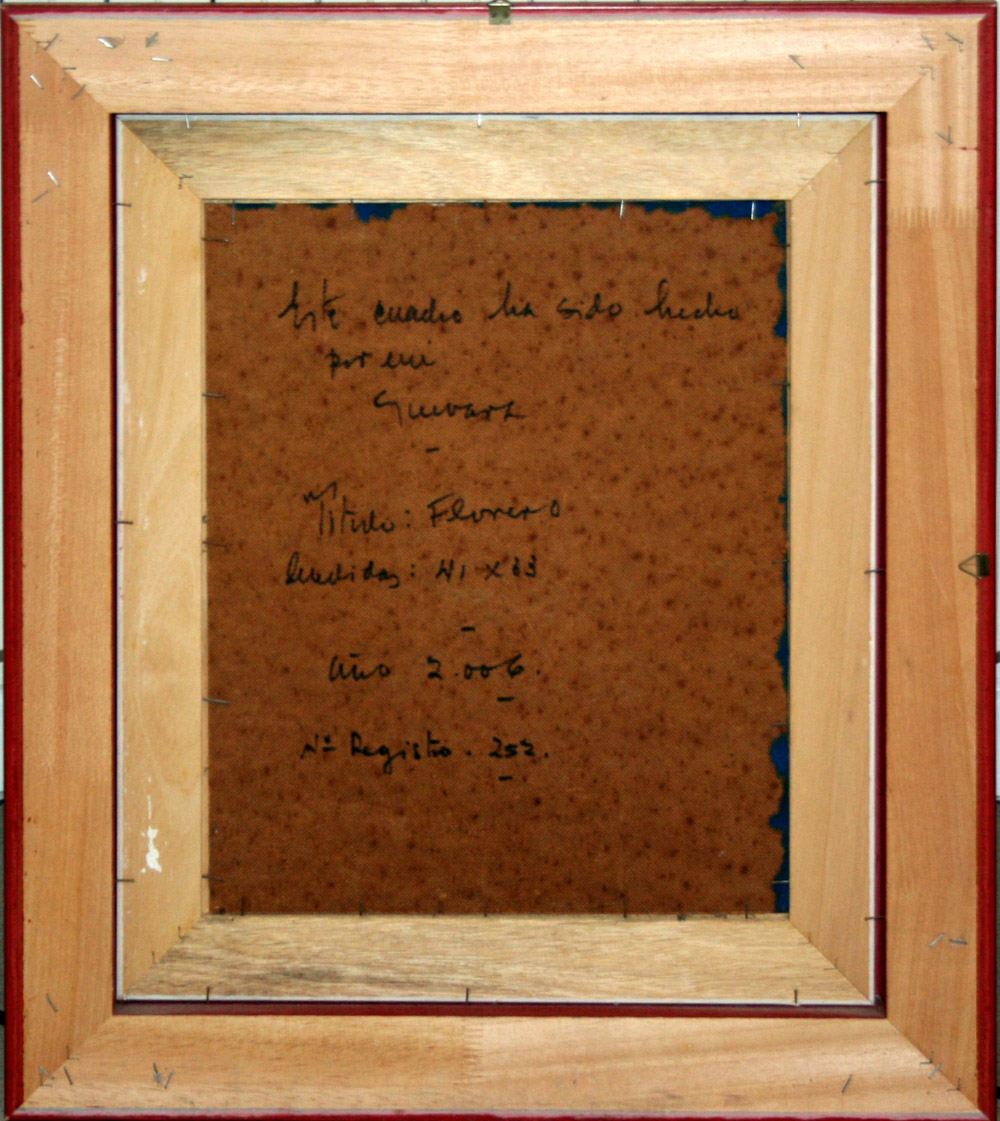 Este cuadro ha sido hecho
por mi
Guevara
Título: Florero
Medidas: 41 x 33
Año 2.006.
Nº Registro. 252.